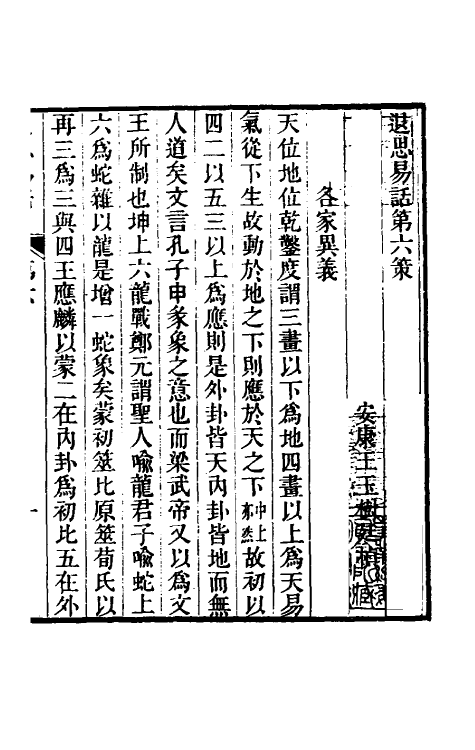 退思易話第六策
安康王玉樹
各家異義
天位地位乾鑿度謂三畫以下爲地四畫以上爲天易
氣從下生故動於地之下則應於天之下中上亦然故初以
四二以五三以上爲應則是外卦皆天内卦皆地而無
人道矣文言孔子申彖象之意也而梁武帝又以爲文
王所制也坤上六龍戰鄭元謂聖人喻龍君子喻蛇上
六爲蛇雜以龍是增一蛇象矣蒙初筮比原筮荀氏以
再三爲三與四王應麟以蒙二在内卦爲初比五在外